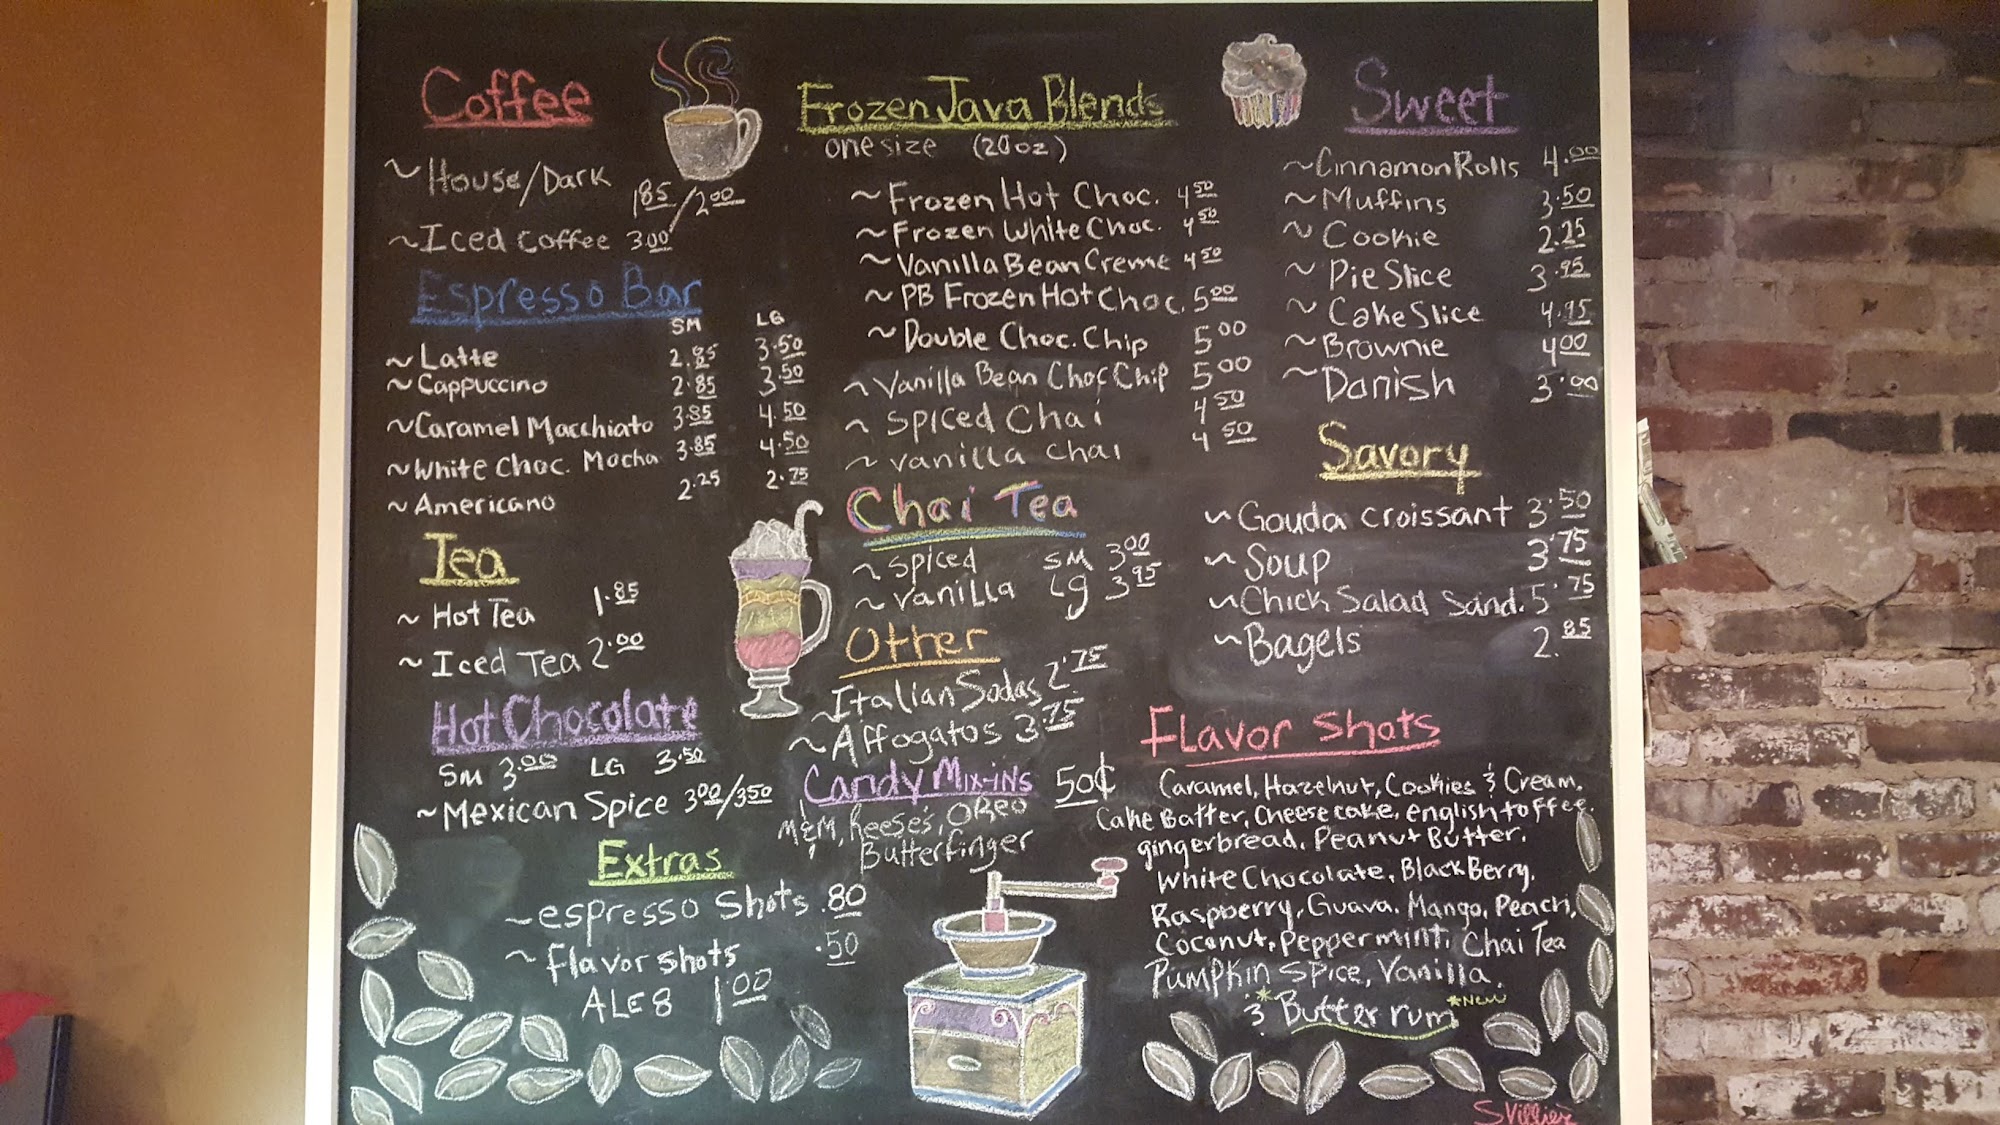 Coffee
~House/Dark 1.85/2.00
~Iced coffee 3.00
Espresso Bar
SM LG
~Latte 2.85 3.50
~Cappuccino 2.85 3.50
~Caramel Macchiato 3.85 4.50
~White Choc. Mocha 3.85 4.50
~Americano 2.25 2.75
Tea
~Hot Tea 1.85
~Iced Tea 2.00
Hot Chocolate
SM 3.00 LG 3.50
~Mexican Spice 3.00/3.50
Extras
~espresso Shots .80
~flavor shots .50
ALE8 1.00
Frozen Java Blends
one size (20oz)
~Frozen Hot Choc. 4.50
~Frozen White Choc. 4.50
~Vanilla Bean Creme 4.50
~PB Frozen Hot Choc. 5.00
~Double Choc. Chip 5.00
~Vanilla Bean Choc Chip 5.00
~Spiced Chai 4.50
~Vanilla Chai 4.50
Chai Tea
~Spiced SM 3.00
~Vanilla Lg 3.95
Other
~Italian Sodas 2.75
~Affogatos 3.75
Candy Mix-ins 50¢
M&M, Reese's, OREO
Butterfinger
Sweet
~Cinnamon Rolls 4.00
~Muffins 3.50
~Cookie 2.25
~Pie Slice 3.95
~Cake Slice 4.95
~Brownie 4.00
~Danish 3.00
Savory
~Gouda croissant 3.50
~Soup 3.75
~Chick Salad Sand. 5.75
~Bagels 2.85
Flavor Shots
Caramel, Hazelnut, Cookies & Cream,
Cake Batter, Cheesecake, english toffee,
gingerbread, Peanut Butter,
White Chocolate, BlackBerry,
Raspberry, Guava, Mango, Peach,
Coconut, Peppermint, Chai Tea
Pumpkin Spice, Vanilla.
& *Butter rum *New
SVillier